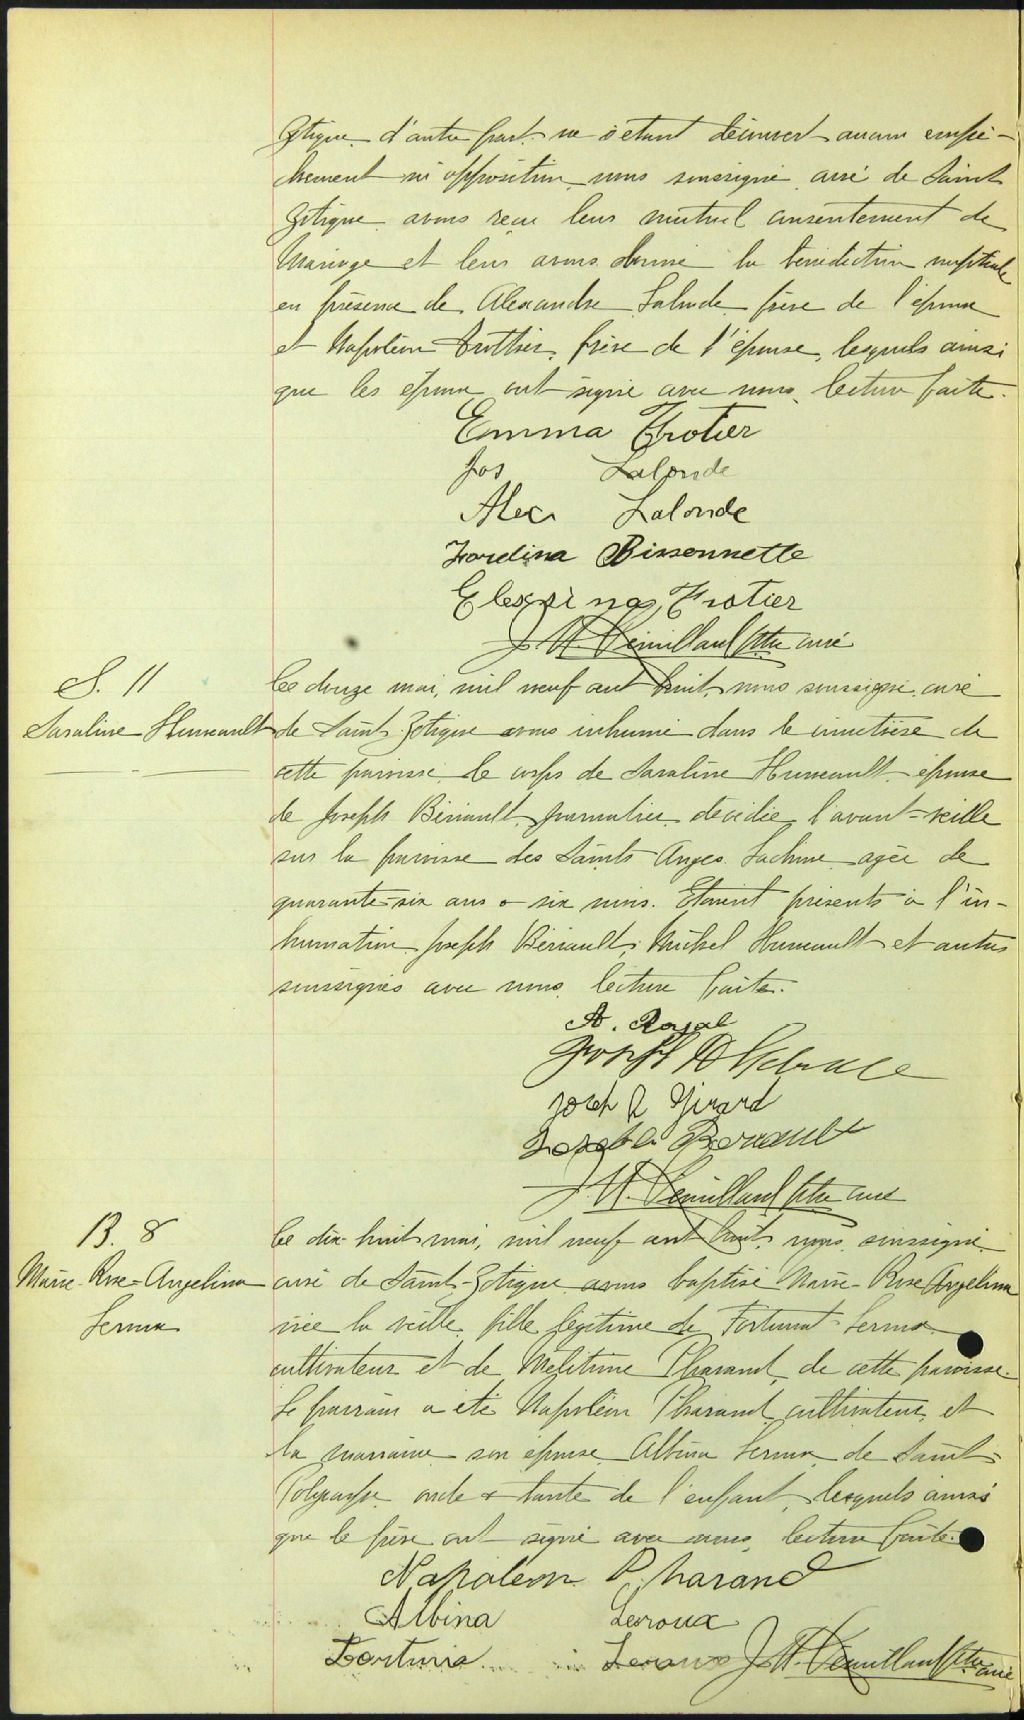 Zotique d'autre part. ne s'étant découvert aucun empê-
chement ni opposition, nous soussigné curé de Saint
Zotique avons reçu leur mutuel consentement de
Mariage et leur avons donné la bénédiction nuptiale
en présence de Alexandre Lalonde frère de l'époux
et Napoléon Trottier, frère de l'épouse, lesquels ainsi
que les époux ont signé avec nous, lecture faite.
Emma Trotier
Jos Lalonde
Alex Lalonde
Bissonnette
Trotier
ptre curé
S. 11
Saraline Huneault
Le douze mai, mil neuf cent huit, nous soussigné, curé
de Saint-Zotique avons inhumé dans le cimetière de
cette paroisse, le corps de Saraline Huneault épouse
de Joseph Bériault, journalier, décédée l'avant-veille
sur la paroisse des Saints Anges, Lachine, agée de
quarante-six ans & six mois. Etaient présents à l'in-
humation, Joseph Bériault, Michel Huneault et autres
soussignés avec nous, lecture faite.
A. Royal
Joseph
Joseph Girard
Beriault
ptre curé
B. 8
Marie-Rose-Angelina
Leroux
Le dix-huit mai, mil neuf cent huit, nous, soussigné
curé de Saint-Zotique avons baptisé Marie-Rose Angelina
née la veille, fille légitime de Fortunat Leroux
cultivateur et de Mélitime Pharand, de cette paroisse.
Le parrain a été Napoléon Pharand, cultivateur, et
la marraine son épouse Albina Leroux, de Saint-
Polycarpe, oncle & tante de l'enfant, lesquels ainsi
que le père ont signé avec nous, lecture faite.
Napoléon Pharand
Albina Leroux
Leroux
ptre curé